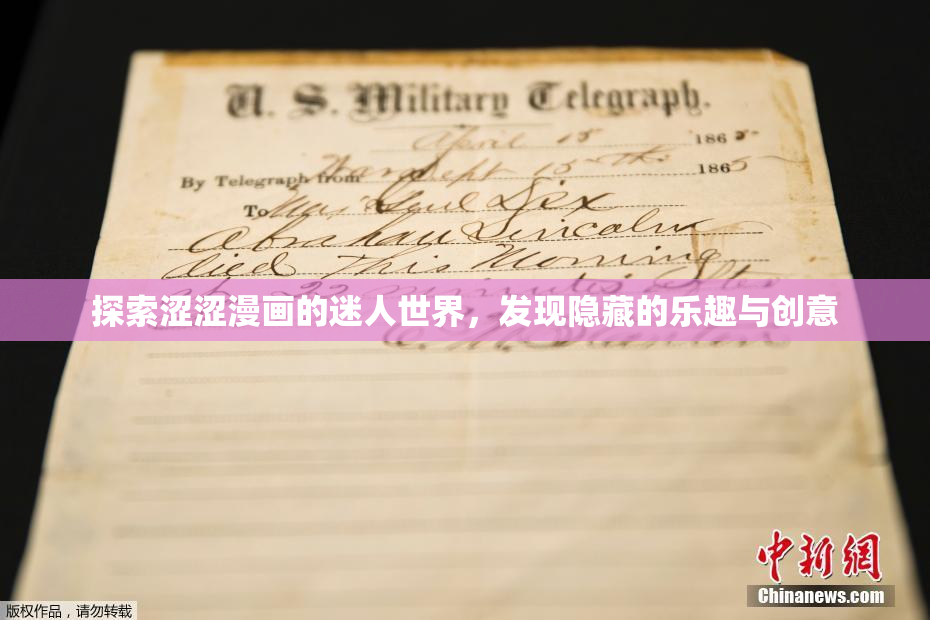 U. S. Military Telegraph.
April 15 1865
By Telegraph from War Dept 15th 1865
To Maj Genl Dix
Abraham Lincoln
died This Morning
at 22 minutes after
探索涩涩漫画的迷人世界，发现隐藏的乐趣与创意
E. M. Stanton
中新网
Chinanews.com
版权作品，请勿转载